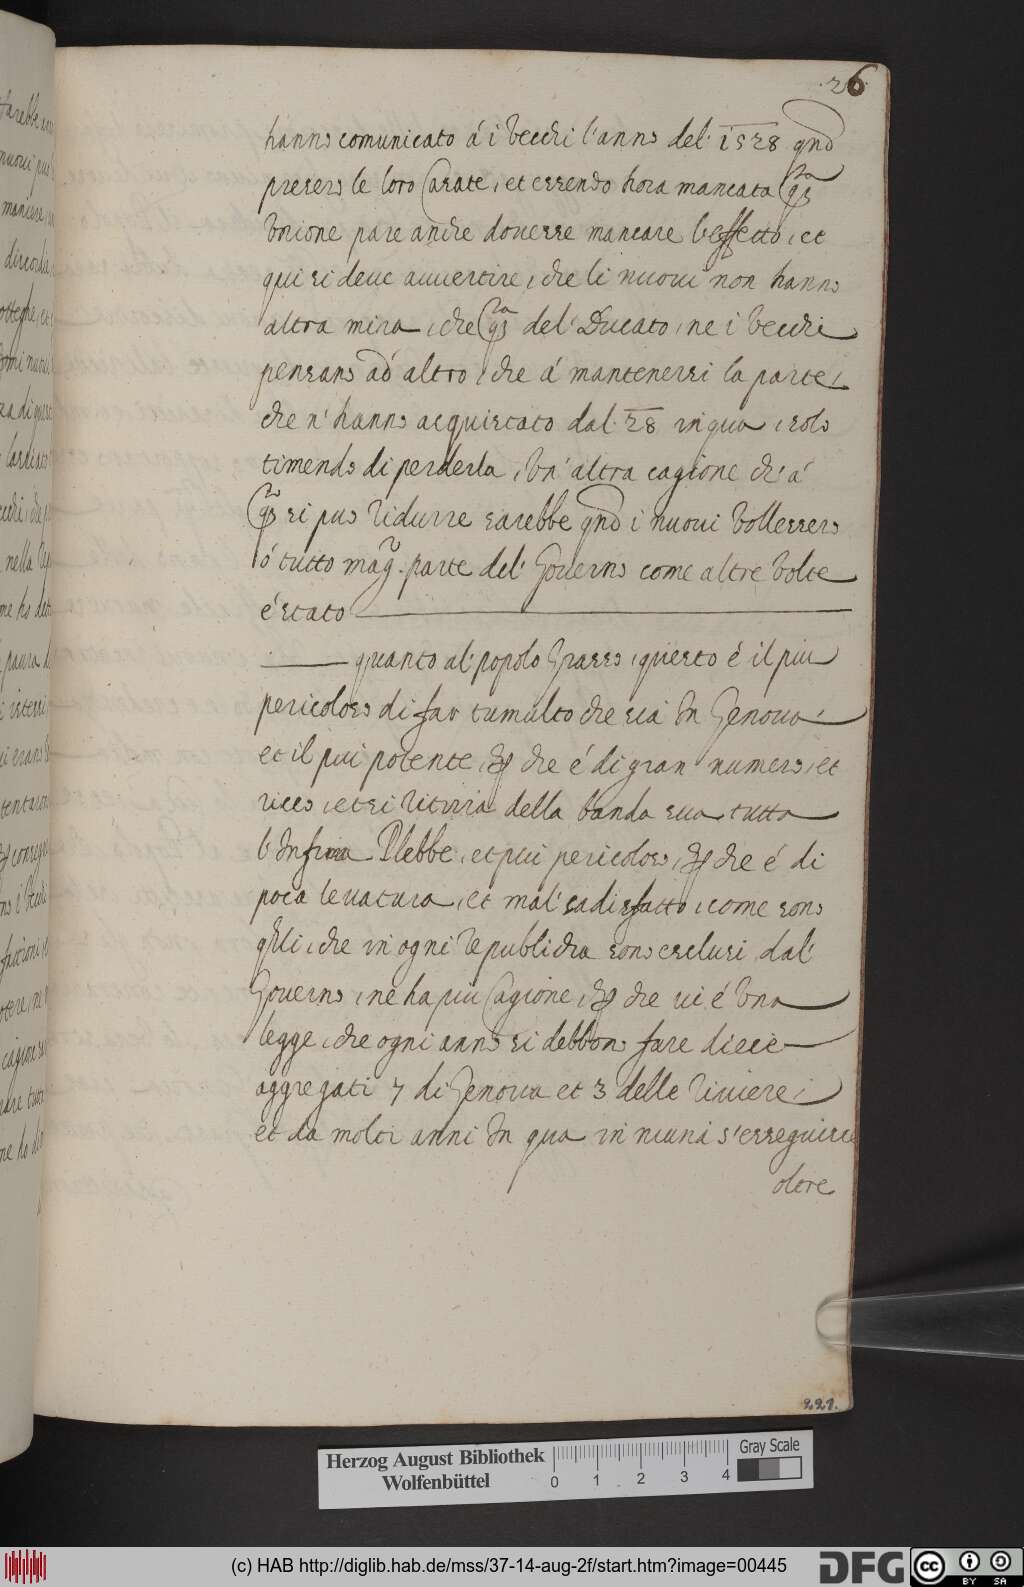 26
hanno comunicato á i Vecchi l'anno del 1528 qnđ
presero le loro Casate, et essendo hora mancata qsta
Unione pare anche douesse mancare l'effetto, et
qui si deue auuertire, che li nuoui non hanno
altra mira, che qsta del' Ducato, ne i Vecchi
pensano ad' altro, che á mantenersi la parte,
che n' hanno acquistato dal 28 in qua, solo
timendo di perderla, Un' altra cagione ch' á
qsto si puo ridurre sarebbe qnđ i nuoui Vollessero
ó tutto magr. parte del' Gouerno come altre Volte
é stato
quanto al' popolo Grasso, questo é il piu
pericoloso di far tumulto che sia In Genoua
et il piu potente, che é di gran numero, et
ricco, et si ritiria della banda sua tutta
l'Infima Plebbe, et piu pericoloso, che é di
poca leuatura, et mal' sadisfatto, come sono
qlli, che in ogni republicha sono esclusi dal'
Gouerno, ne ha piu Cagione, che ui é Una
legge, che ogni anno si debbono fare diece
aggregati 7 di Genoua et 3 delle riuiere,
et da molti anni In qua in niuna s'esseguisce
oltre
221.
Herzog August Bibliothek
Wolfenbüttel
0 1 2 3 4
Gray Scale
(c) HAB http://diglib.hab.de/mss/37-14-aug-2f/start.htm?image=00445
DFG
cc BY SA